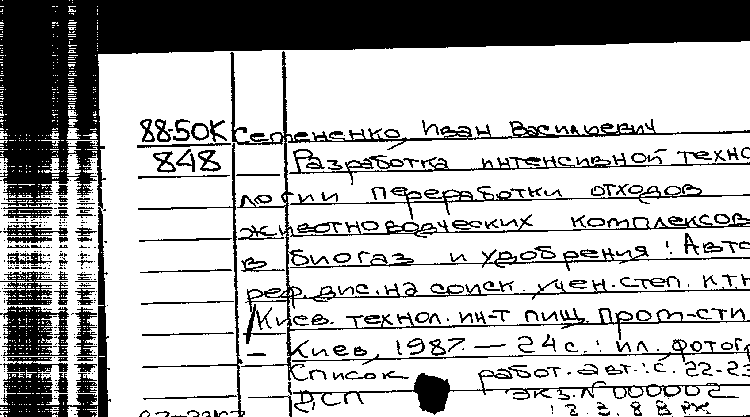 88-50К Семененко, Иван Васильевич
848 Разработка интенсивной техно
логии переработки отходов
животноводческих комплексов
в биогаз и удобрения : Авто
реф. дис. на соиск. учен. степ. к.т.н
/Киев. технол. ин-т пищ. пром-сти
– Киев, 1987. — 24 с. : ил. фотогр
Список работ. авт.: с. 22-23
ДСП экз. N 000002